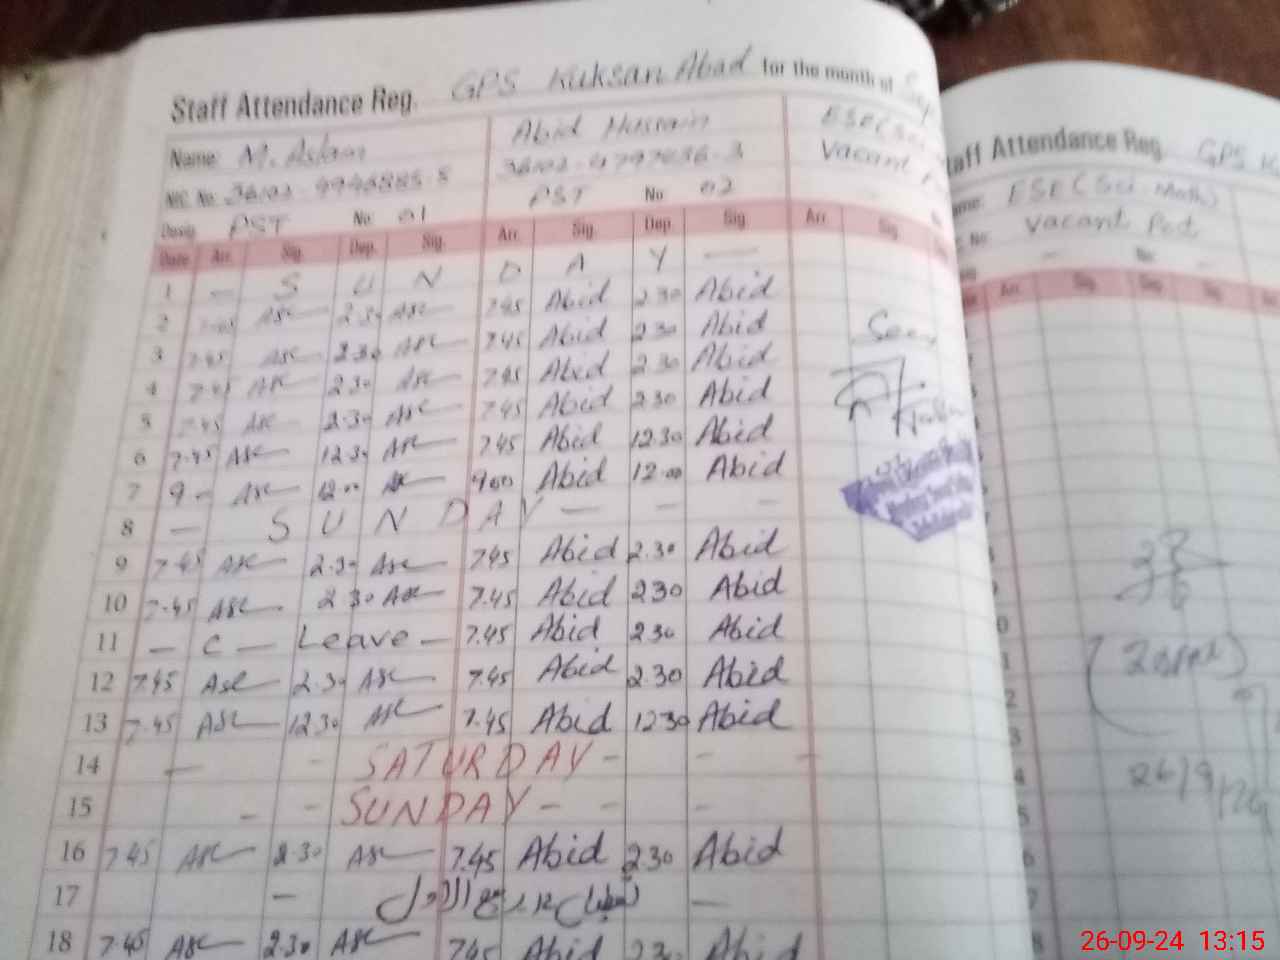 Staff Attendance Reg. GPS Kuksan Abad for the month of Sep
Name M. Aslam Abid Hussain ESE(Sci
NIC No. 36102- Vacant
Desig. PST No 01 PST No 02
Date Arr. Sig. Dep. Sig. Arr. Sig. Dep. Sig. Arr. Sig.
1 — S U N D A Y —
2 7.45 ASL 2.30 ASL 7.45 Abid 2.30 Abid
3 7.45 ASL 2.30 ASL 7.45 Abid 2.30 Abid Seen
4 7.45 ASL 2.30 ASL 7.45 Abid 2.30 Abid
5 7.45 ASL 2.30 ASL 7.45 Abid 2.30 Abid
6 7.45 ASL 12.30 ASL 7.45 Abid 12.30 Abid
7 9- ASL 12.00 ASL 9.00 Abid 12.00 Abid
8 — S U N D A Y — — —
9 7.45 ASL 2.30 ASL 7.45 Abid 2.30 Abid
10 7.45 ASL 2.30 ASL 7.45 Abid 2.30 Abid
11 — C — Leave — 7.45 Abid 2.30 Abid
12 7.45 ASL 2.30 ASL 7.45 Abid 2.30 Abid
13 7.45 ASL 12.30 ASL 7.45 Abid 12.30 Abid
14 — - SATURDAY - - -
15 - - SUNDAY - - -
16 7.45 ASL 2.30 ASL 7.45 Abid 2.30 Abid
17 — تعطیل 12 ربیع الاول —
18 7.45 ASL 2.30 ASL 7.45 Abid 2.30 Abid
taff Attendance Reg. GPS K
ame ESE (Sci-Math)
No. Vacant Post
No
Arr. Sig. Dep. Sig.
26/9/24
26-09-24 13:15